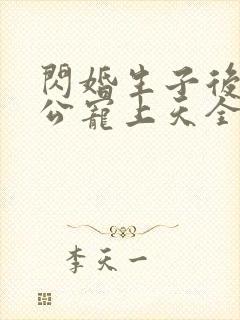 閃婚生子後
公寵上天全
李天一